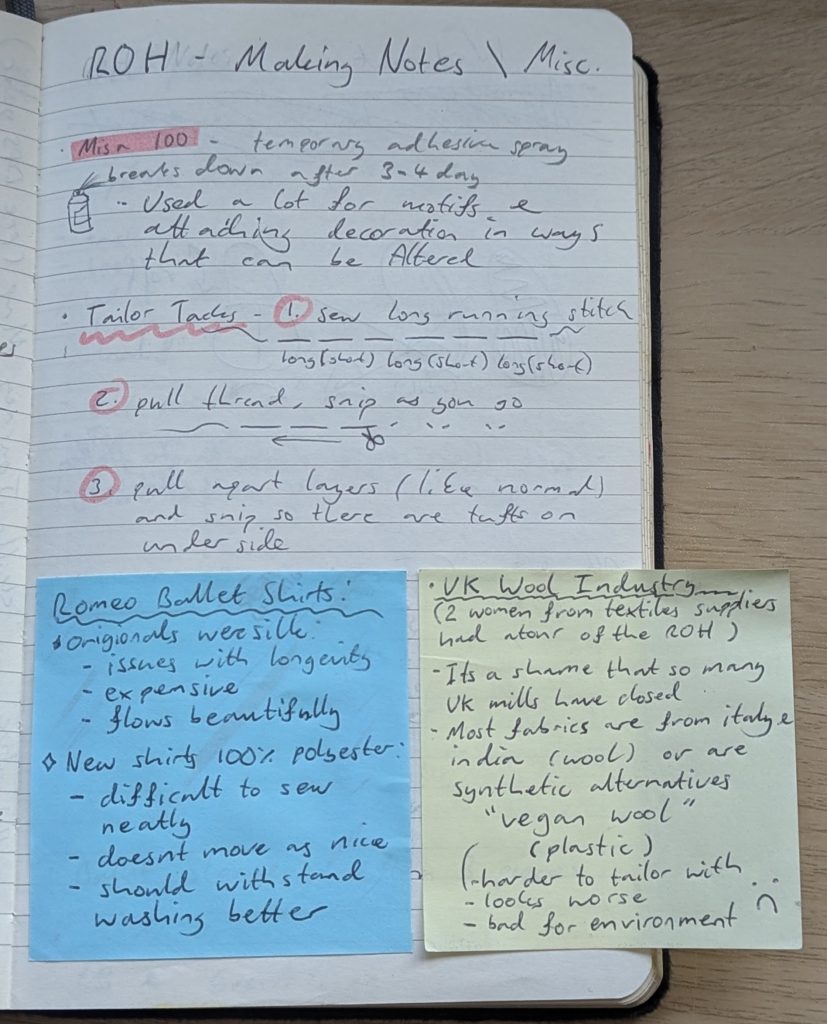 ROH - Making Notes \ Misc.
· Misn 100 - temporary adhesive spray
breaks down after 3-4 day
- Used a lot for motifs &
attaching decoration in ways
that can be Altered
· Tailor Tacks - 1. sew long running stitch
long(short) long(short) long(short)
2. pull thread, snip as you go
3. pull apart layers (like normal)
and snip so there are tufts on
underside
Romeo Ballet Shirts:
Origionals were silk:
- issues with longevity
- expensive
- flows beautifully
◊ New shirts 100% polyester:
- difficult to sew
neatly
- doesnt move as nice
- should withstand
washing better
· UK Wool Industry
(2 women from textiles suppliers
had atour of the ROH)
- Its a shame that so many
UK mills have closed
- Most fabrics are from italy &
india (wool) or are
synthetic alternatives
"vegan wool"
(plastic)
- harder to tailor with
- looks worse
- bad for environment :(
es